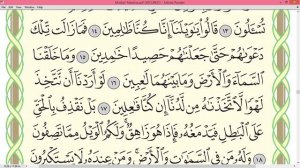 تُسْـَٔلُونَ ١٣ قَالُوا۟ يَٰوَيْلَنَآ إِنَّا كُنَّا ظَٰلِمِينَ ١٤ فَمَا زَالَت تِّلْكَ
دَعْوَىٰهُمْ حَتَّىٰ جَعَلْنَٰهُمْ حَصِيدًا خَٰمِدِينَ ١٥ وَمَا خَلَقْنَا
ٱلسَّمَآءَ وَٱلْأَرْضَ وَمَا بَيْنَهُمَا لَٰعِبِينَ ١٦ لَوْ أَرَدْنَآ أَن نَّتَّخِذَ
لَهْوًا لَّٱتَّخَذْنَٰهُ مِن لَّدُنَّآ إِن كُنَّا فَٰعِلِينَ ١٧ بَلْ نَقْذِفُ بِٱلْحَقِّ
عَلَى ٱلْبَٰطِلِ فَيَدْمَغُهُۥ فَإِذَا هُوَ زَاهِقٌ وَلَكُمُ ٱلْوَيْلُ مِمَّا تَصِفُونَ
١٨ وَلَهُۥ مَن فِى ٱلسَّمَٰوَٰتِ وَٱلْأَرْضِ وَمَنْ عِندَهُۥ لَا يَسْتَكْبِرُونَ